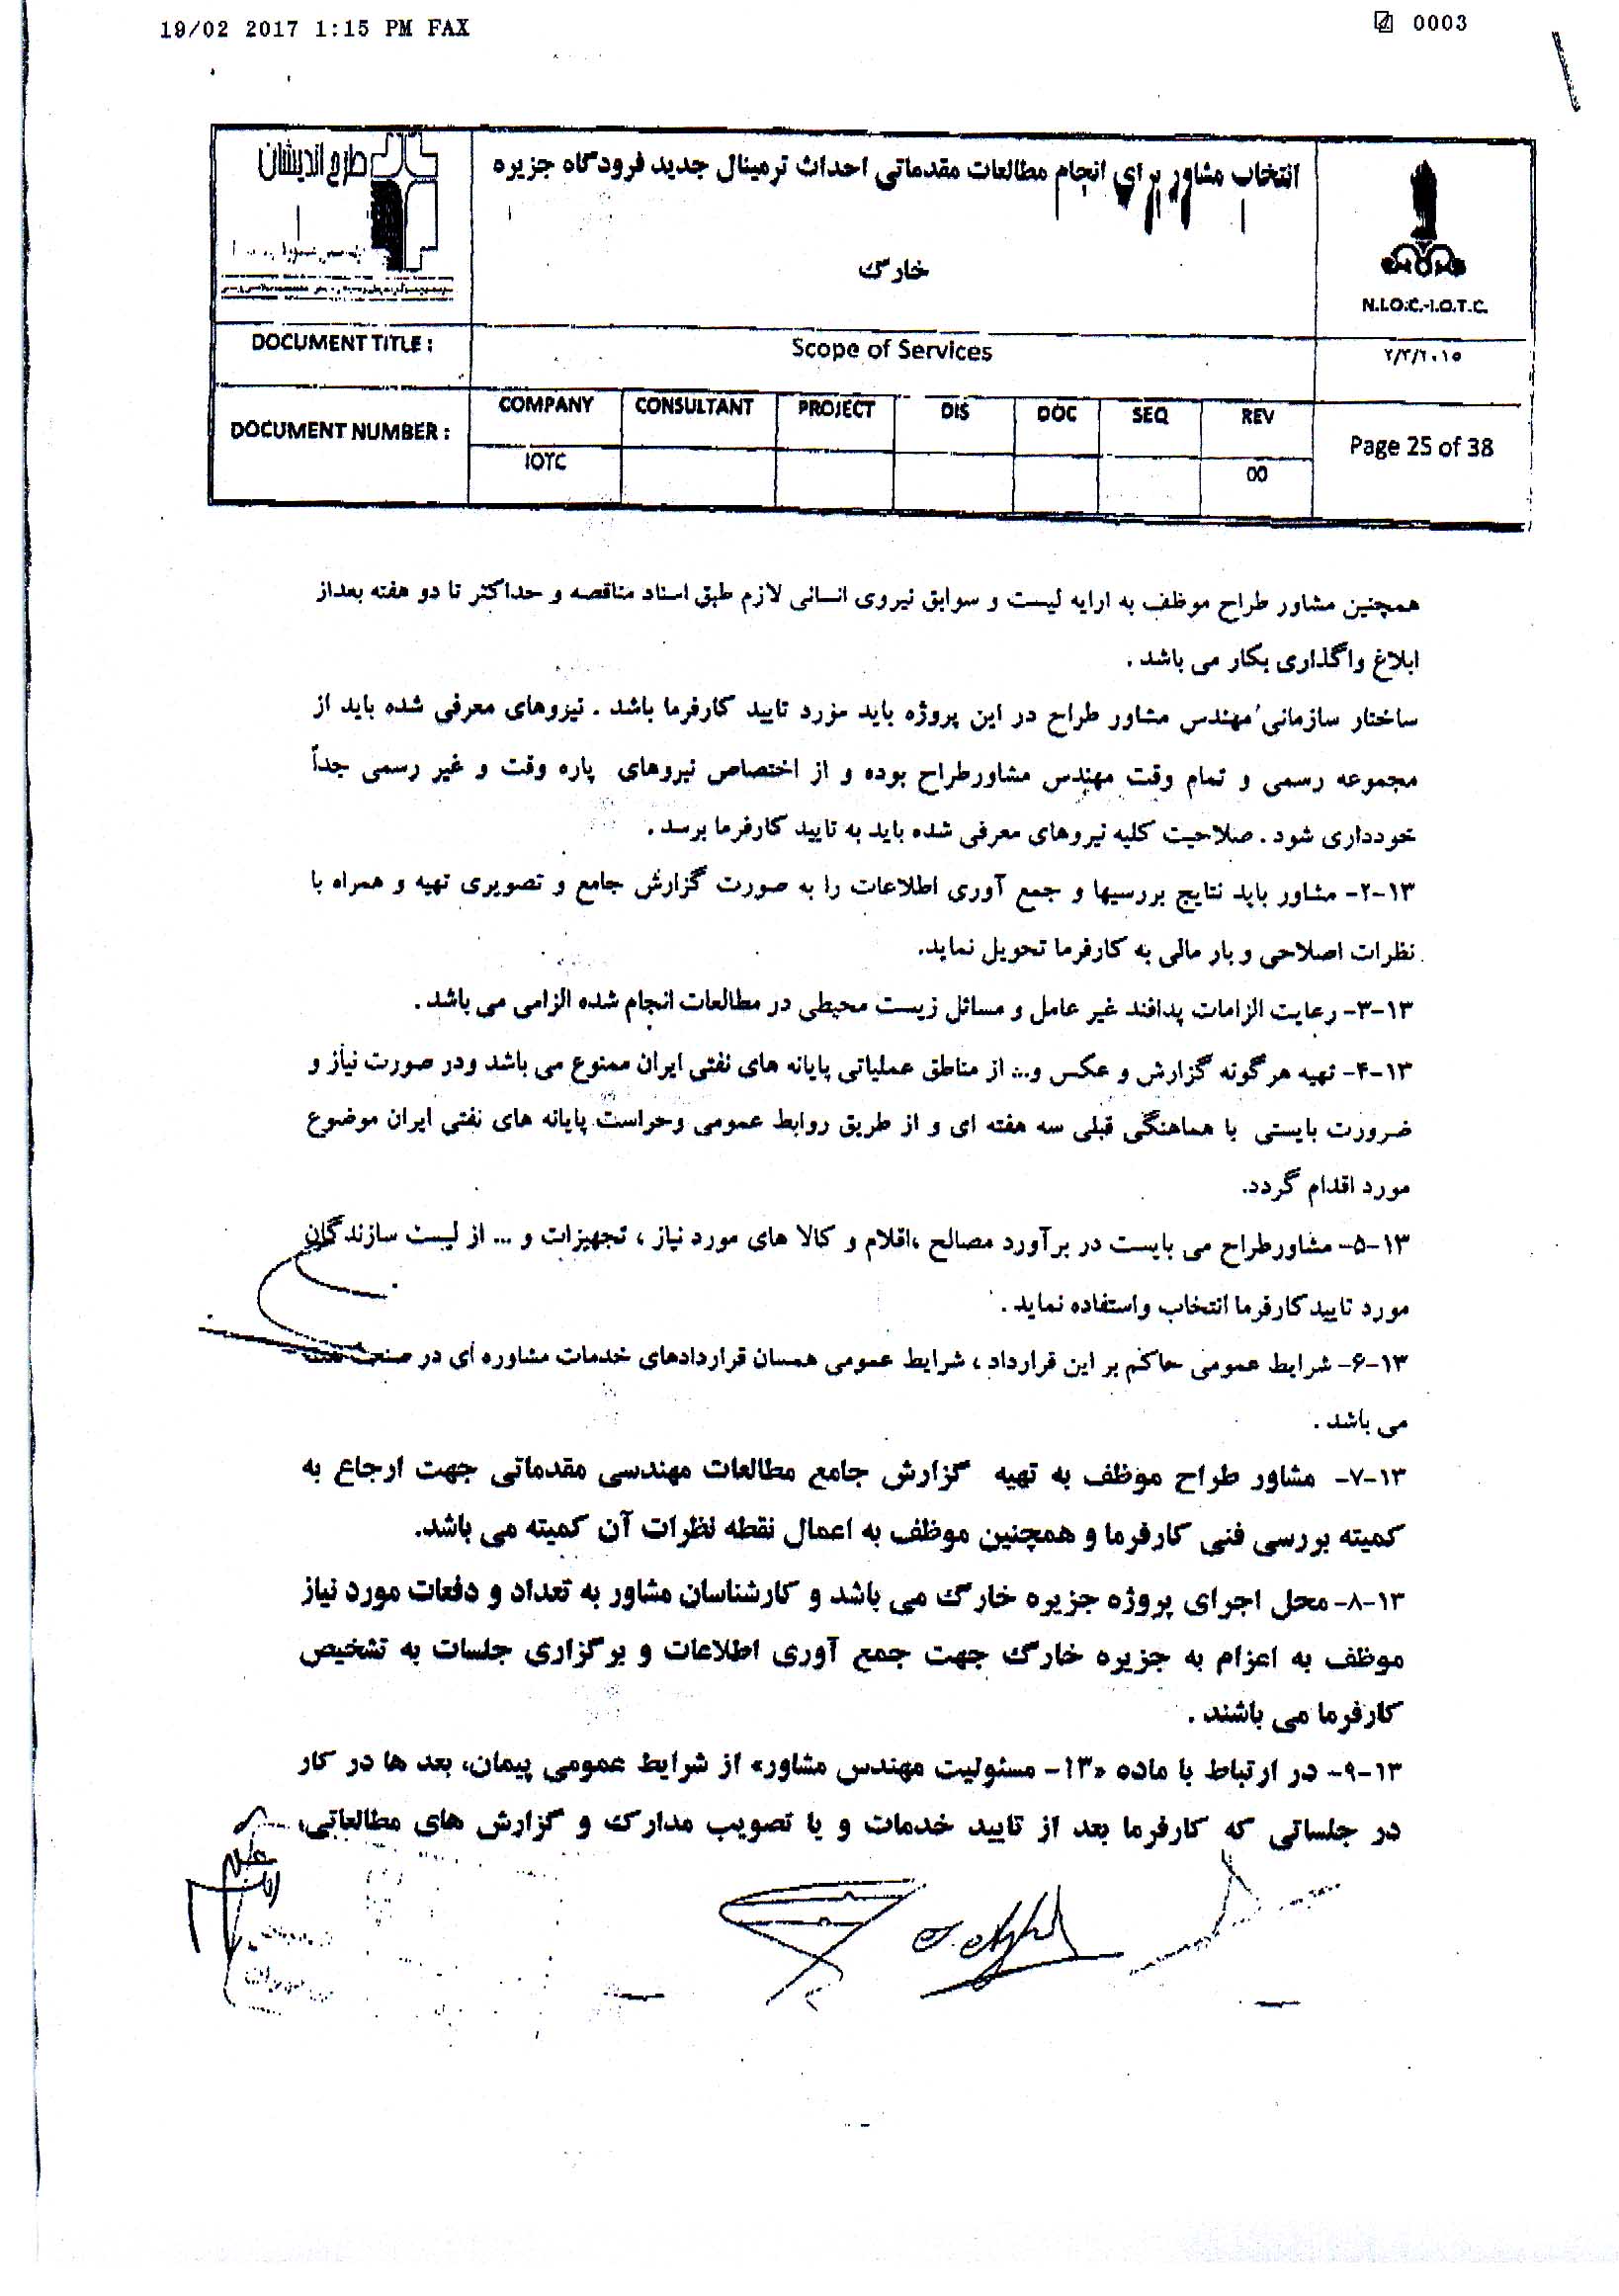 19/02 2017 1:15 PM FAX
0003
طرح اندیشان
انتخاب مشاور برای انجام مطالعات مقدماتی احداث ترمینال جدید فرودگاه جزیره
خارک
N.I.O.C.-I.O.T.C.
DOCUMENT TITLE :
Scope of Services
۲/۳/۲۰۱۵
DOCUMENT NUMBER :
COMPANY CONSULTANT PROJECT DIS DOC SEQ REV
Page 25 of 38
IOTC 00
همچنین مشاور طراح موظف به ارایه لیست و سوابق نیروی انسانی لازم طبق اسناد مناقصه و حداکثر تا دو هفته بعداز
ابلاغ واگذاری بکار می باشد .
ساختار سازمانی مهندس مشاور طراح در این پروژه باید مورد تایید کارفرما باشد . نیروهای معرفی شده باید از
مجموعه رسمی و تمام وقت مهندس مشاورطراح بوده و از اختصاص نیروهای پاره وقت و غیر رسمی جداً
خودداری شود . صلاحیت کلیه نیروهای معرفی شده باید به تایید کارفرما برسد .
۱۳-۲- مشاور باید نتایج بررسیها و جمع آوری اطلاعات را به صورت گزارش جامع و تصویری تهیه و همراه با
نظرات اصلاحی و بار مالی به کارفرما تحویل نماید.
۱۳-۳- رعایت الزامات پدافند غیر عامل و مسائل زیست محیطی در مطالعات انجام شده الزامی می باشد .
۱۳-۴- تهیه هرگونه گزارش و عکس و... از مناطق عملیاتی پایانه های نفتی ایران ممنوع می باشد ودر صورت نیاز و
ضرورت بایستی با هماهنگی قبلی سه هفته ای و از طریق روابط عمومی وحراست پایانه های نفتی ایران موضوع
مورد اقدام گردد.
۱۳-۵- مشاورطراح می بایست در برآورد مصالح ،اقلام و کالا های مورد نیاز ، تجهیزات و ... از لیست سازندگان
مورد تایید کارفرما انتخاب واستفاده نماید .
۱۳-۶- شرایط عمومی حاکم بر این قرارداد ، شرایط عمومی همسان قراردادهای خدمات مشاوره ای در صنعت نفت
می باشد .
۱۳-۷- مشاور طراح موظف به تهیه گزارش جامع مطالعات مهندسی مقدماتی جهت ارجاع به
کمیته بررسی فنی کارفرما و همچنین موظف به اعمال نقطه نظرات آن کمیته می باشد.
۱۳-۸- محل اجرای پروژه جزیره خارک می باشد و کارشناسان مشاور به تعداد و دفعات مورد نیاز
موظف به اعزام به جزیره خارک جهت جمع آوری اطلاعات و برگزاری جلسات به تشخیص
کارفرما می باشند .
۱۳-۹- در ارتباط با ماده «۱۳- مسئولیت مهندس مشاور» از شرایط عمومی پیمان، بعد ها در کار
در جلساتی که کارفرما بعد از تایید خدمات و یا تصویب مدارک و گزارش های مطالعاتی،